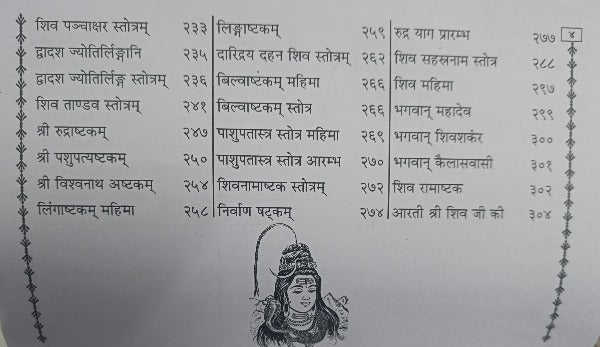 शिव पञ्चाक्षर स्तोत्रम् २३३
द्वादश ज्योतिर्लिङ्गानि २३५
द्वादश ज्योतिर्लिङ्ग स्तोत्रम् २३६
शिव ताण्डव स्तोत्रम् २४१
श्री रुद्राष्टकम् २४७
श्री पशुपत्यष्टकम् २५०
श्री विश्वनाथ अष्टकम् २५४
लिंगाष्टकम् महिमा २५८
लिङ्गाष्टकम् २५९
दारिद्रय दहन शिव स्तोत्रम् २६२
बिल्वाष्टकम् महिमा २६६
बिल्वाष्टकम् स्तोत्र २६६
पाशुपतास्त्र स्तोत्र महिमा २६९
पाशुपतास्त्र स्तोत्र आरम्भ २७०
शिवनामाष्टक स्तोत्रम् २७२
निर्वाण षट्कम् २७४
रुद्र याग प्रारम्भ २७७
शिव सहस्रनाम स्तोत्र २८८
शिव महिमा २९७
भगवान् महादेव २९९
भगवान् शिवशकंर ३००
भगवान् कैलासवासी ३०१
शिव रामाष्टक ३०२
आरती श्री शिव जी की ३०४
४